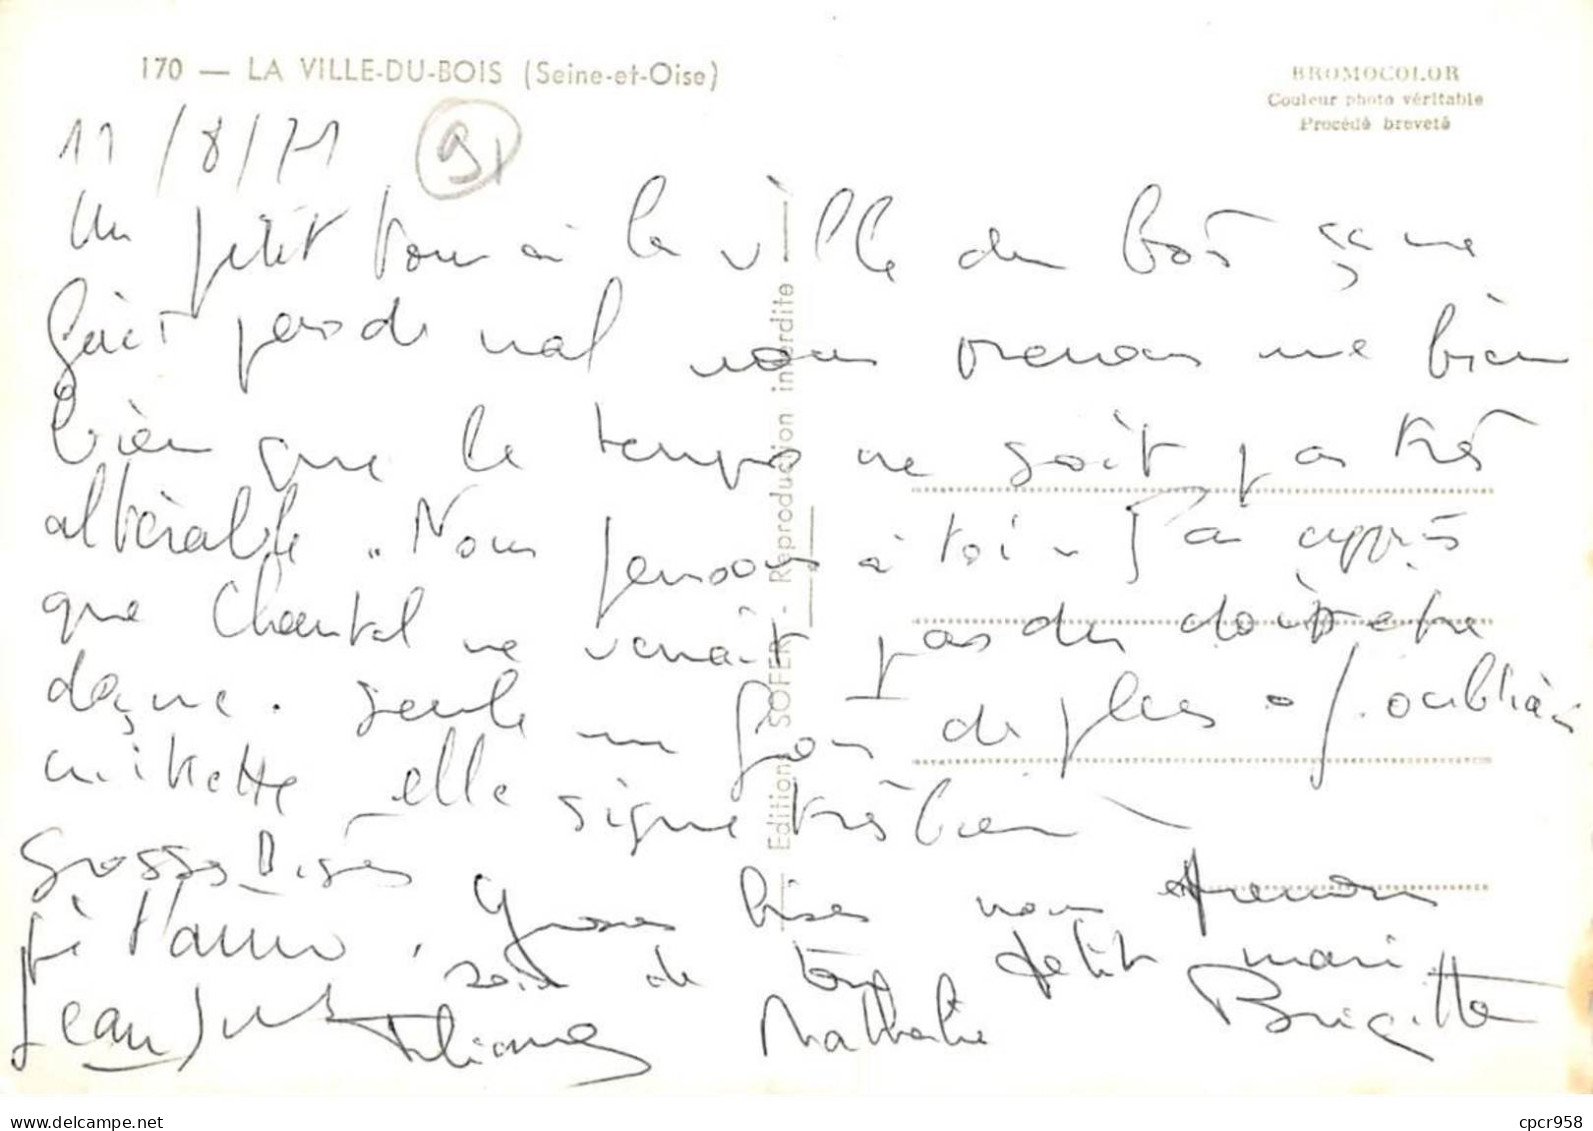 170 — LA VILLE-DU-BOIS (Seine-et-Oise)
BROMOCOLOR
Couleur photo véritable
Procédé breveté
11/8/71
91
Un petit tour à la ville du bois ça ne
fait pas de mal nous prenons une bien
bien que le temps ne soit pas très
altérable. Nous pensons à toi - Pa après
que Chantal ne venait pas du
seule un fois de plus. J'oubliais
mikette elle signe très bien
Grosses Bises
je t'aime, Grosses bises nous prenons
soin de ton petit mari
Jean Eliane Nathalie Brigitte
Edition SOFER - Reproduction interdite
cpcr958